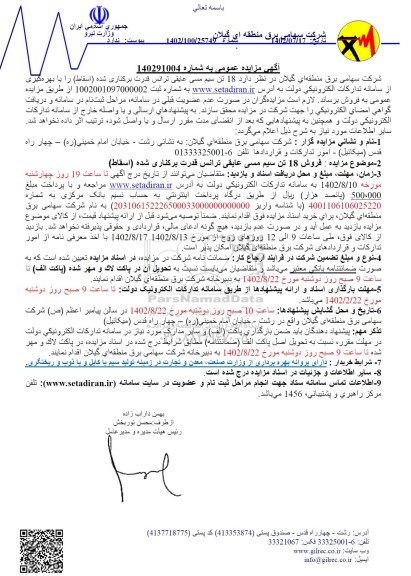 باسمه تعالی
جمهوری اسلامی ایران
وزارت نیرو
شرکت سهامی برق منطقه ای گیلان
تاریخ: 1402/07/17 شماره: 1402/100/25749 پیوست: ندارد
آگهی مزایده عمومی به شماره 140291004
شرکت سهامی برق منطقه‌ای گیلان در نظر دارد 18 تن سیم مسی عایقی ترانس قدرت برکناری شده (اسقاط) را با بهره‌گیری
از سامانه تدارکات الکترونیکی دولت به آدرس www.setadiran.ir به شماره ثبت 1002001097000002 از طریق مزایده
عمومی به فروش برساند. لازم است مزایده‌گران در صورت عدم عضویت قبلی در سامانه، مراحل ثبت‌نام در سامانه و دریافت
گواهی امضای الکترونیکی را جهت شرکت در مزایده محقق سازند. به پیشنهادهای ارسالی و یا واصله خارج از سامانه تدارکات
الکترونیکی دولت و همچنین به پیشنهادهایی که بعد از انقضای مدت مقرر ارسال و یا واصل شود، ترتیب اثر داده نخواهد شد.
سایر اطلاعات مورد نیاز به شرح ذیل اعلام می‌گردد:
1-نام و نشانی مزایده گزار : شرکت سهامی برق منطقه‌ای گیلان: به نشانی رشت - خیابان امام خمینی(ره) – چهار راه
قدس (میکائیل) - امور تدارکات و قراردادها تلفن 6-01333325001
2-موضوع مزایده : فروش 18 تن سیم مسی عایقی ترانس قدرت برکناری شده (اسقاط)
3-زمان، مهلت، مبلغ و محل دریافت اسناد و بازدید: متقاضیان می‌توانند از تاریخ درج آگهی تا ساعت 19 روز چهارشنبه
مورخه 1402/8/10 به سامانه تدارکات الکترونیکی دولت به آدرس www.setadiran.ir مراجعه و با پرداخت مبلغ
500،000 (پانصد هزار) ریال از طریق درگاه پرداخت اینترنتی به حساب نسیم بانک مرکزی به شماره
4001106106025220 (با شناسه واریز ) به نام شرکت سهامی برق
منطقه‌ای گیلان، برای خرید اسناد مزایده فوق اقدام نمایند. ضمناً توصیه می‌شود قبل از ارائه پیشنهاد قیمت، از کالای موضوع
مزایده بازدید به عمل آید و در صورت عدم بازدید، هیچ گونه ادعای مالی، قراردادی و حقوقی پذیرفته نخواهد شد. بازدید
از کالای فوق، طی ساعات 9 الی 12 روزهای زوج از مورخ 1402/8/13 لغایت 1402/8/17 با اخذ معرفی نامه از امور
تدارکات و قراردادهای شرکت برق منطقه‌ای گیلان امکان پذیر است.
4-نوع و مبلغ تضمین شرکت در فرآیند ارجاع کار: ضمانت نامه شرکت در مزایده، در اسناد مزایده تعیین شده است که به
صورت ضمانتنامه بانکی معتبر می‌باشد و متقاضیان می‌بایست نسبت به تحویل آن در پاکت لاک و مهر شده (پاکت الف) تا
ساعت 9 صبح روز دوشنبه مورخ 1402/8/22 به دبیرخانه شرکت برق منطقه‌ای گیلان اقدام نمایند.
5-مهلت بارگذاری اسناد و ارائه پیشنهادها از طریق سامانه تدارکات الکترونیک دولت: تا ساعت 9 صبح روز دوشنبه
مورخ 1402/8/22 می‌باشد.
6-تاریخ و محل گشایش پیشنهادها: ساعت 10 صبح روز دوشنبه مورخ 1402/8/22 در سالن پیامبر اعظم (ص) شرکت
سهامی برق منطقه‌ای گیلان واقع در رشت - خیابان امام خمینی(ره) – چهار راه قدس (میکائیل)
تذکر مهم: پیشنهاد دهندگان باید ضمن بارگذاری پاکت (الف) و سایر مدارک مورد نیاز در سامانه تدارکات الکترونیکی دولت
در مهلت مقرره، نسبت به تحویل اصل پاکت الف (ضمانتنامه) مطابق شرایط درج شده در اسناد مزایده، در پاکت لاک و مهر
شده تا ساعت 9 صبح روز دوشنبه مورخ 1402/8/22 به دبیرخانه شرکت سهامی برق منطقه‌ای گیلان اقدام نمایند.
7- شرایط خریدار : دارای پروانه بهره برداری از وزارت صنعت، معدن و تجارت در زمینه تولید سیم یا کابل و یا ذوب و ریخته‌گری.
8- سایر اطلاعات و جزئیات در اسناد مزایده درج شده است.
9-اطلاعات تماس سامانه ستاد جهت انجام مراحل ثبت نام و عضویت در سایت سامانه (www.setadiran.ir): تلفن
مرکز راهبری و پشتیبانی، 1456 می‌باشد.
ParsNamadData
بهمن داراب زاده
ازطرف-محسن نوربخش
رئیس هیأت مدیره و مدیرعامل
آدرس: رشت - چهارراه قدس - صندوق پستی (413353874) کد پستی (4137718775)
تلفن: 6-33325001 فکس: 33321067
وب سایت: www.gilrec.co.ir
ایمیل: info@gilrec.co.ir